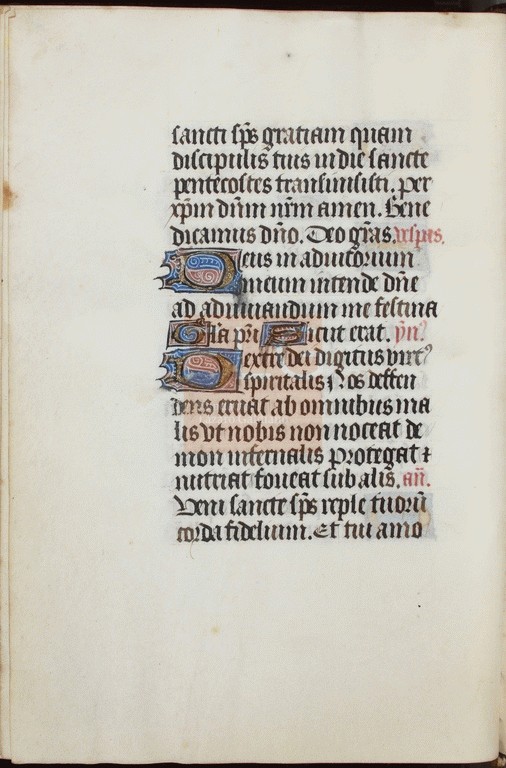 sancti sp̄s gratiam quam
discipulis tuis in die sancte
pentecostes transmisisti. Per
xp̄m dn̄m nr̄m amen. Bene
dicamus dn̄o. Deo gr̄as. vesp̄as.
Deus in adiutorium
meum intende dn̄e
ad adiuuandum me festina
Gl̄a pr̄i Sicut erat. yn̄.
Dextre dei digitus virt᾽
spiritalis Nos deffen
dens eruat ab omnibus ma
lis vt nobis non noceat de
mon infernalis protegat ⁊
nutriat foueat sub alis. an̄.
Veni sancte sp̄s reple tuorū
corda fidelium. Et tui amo